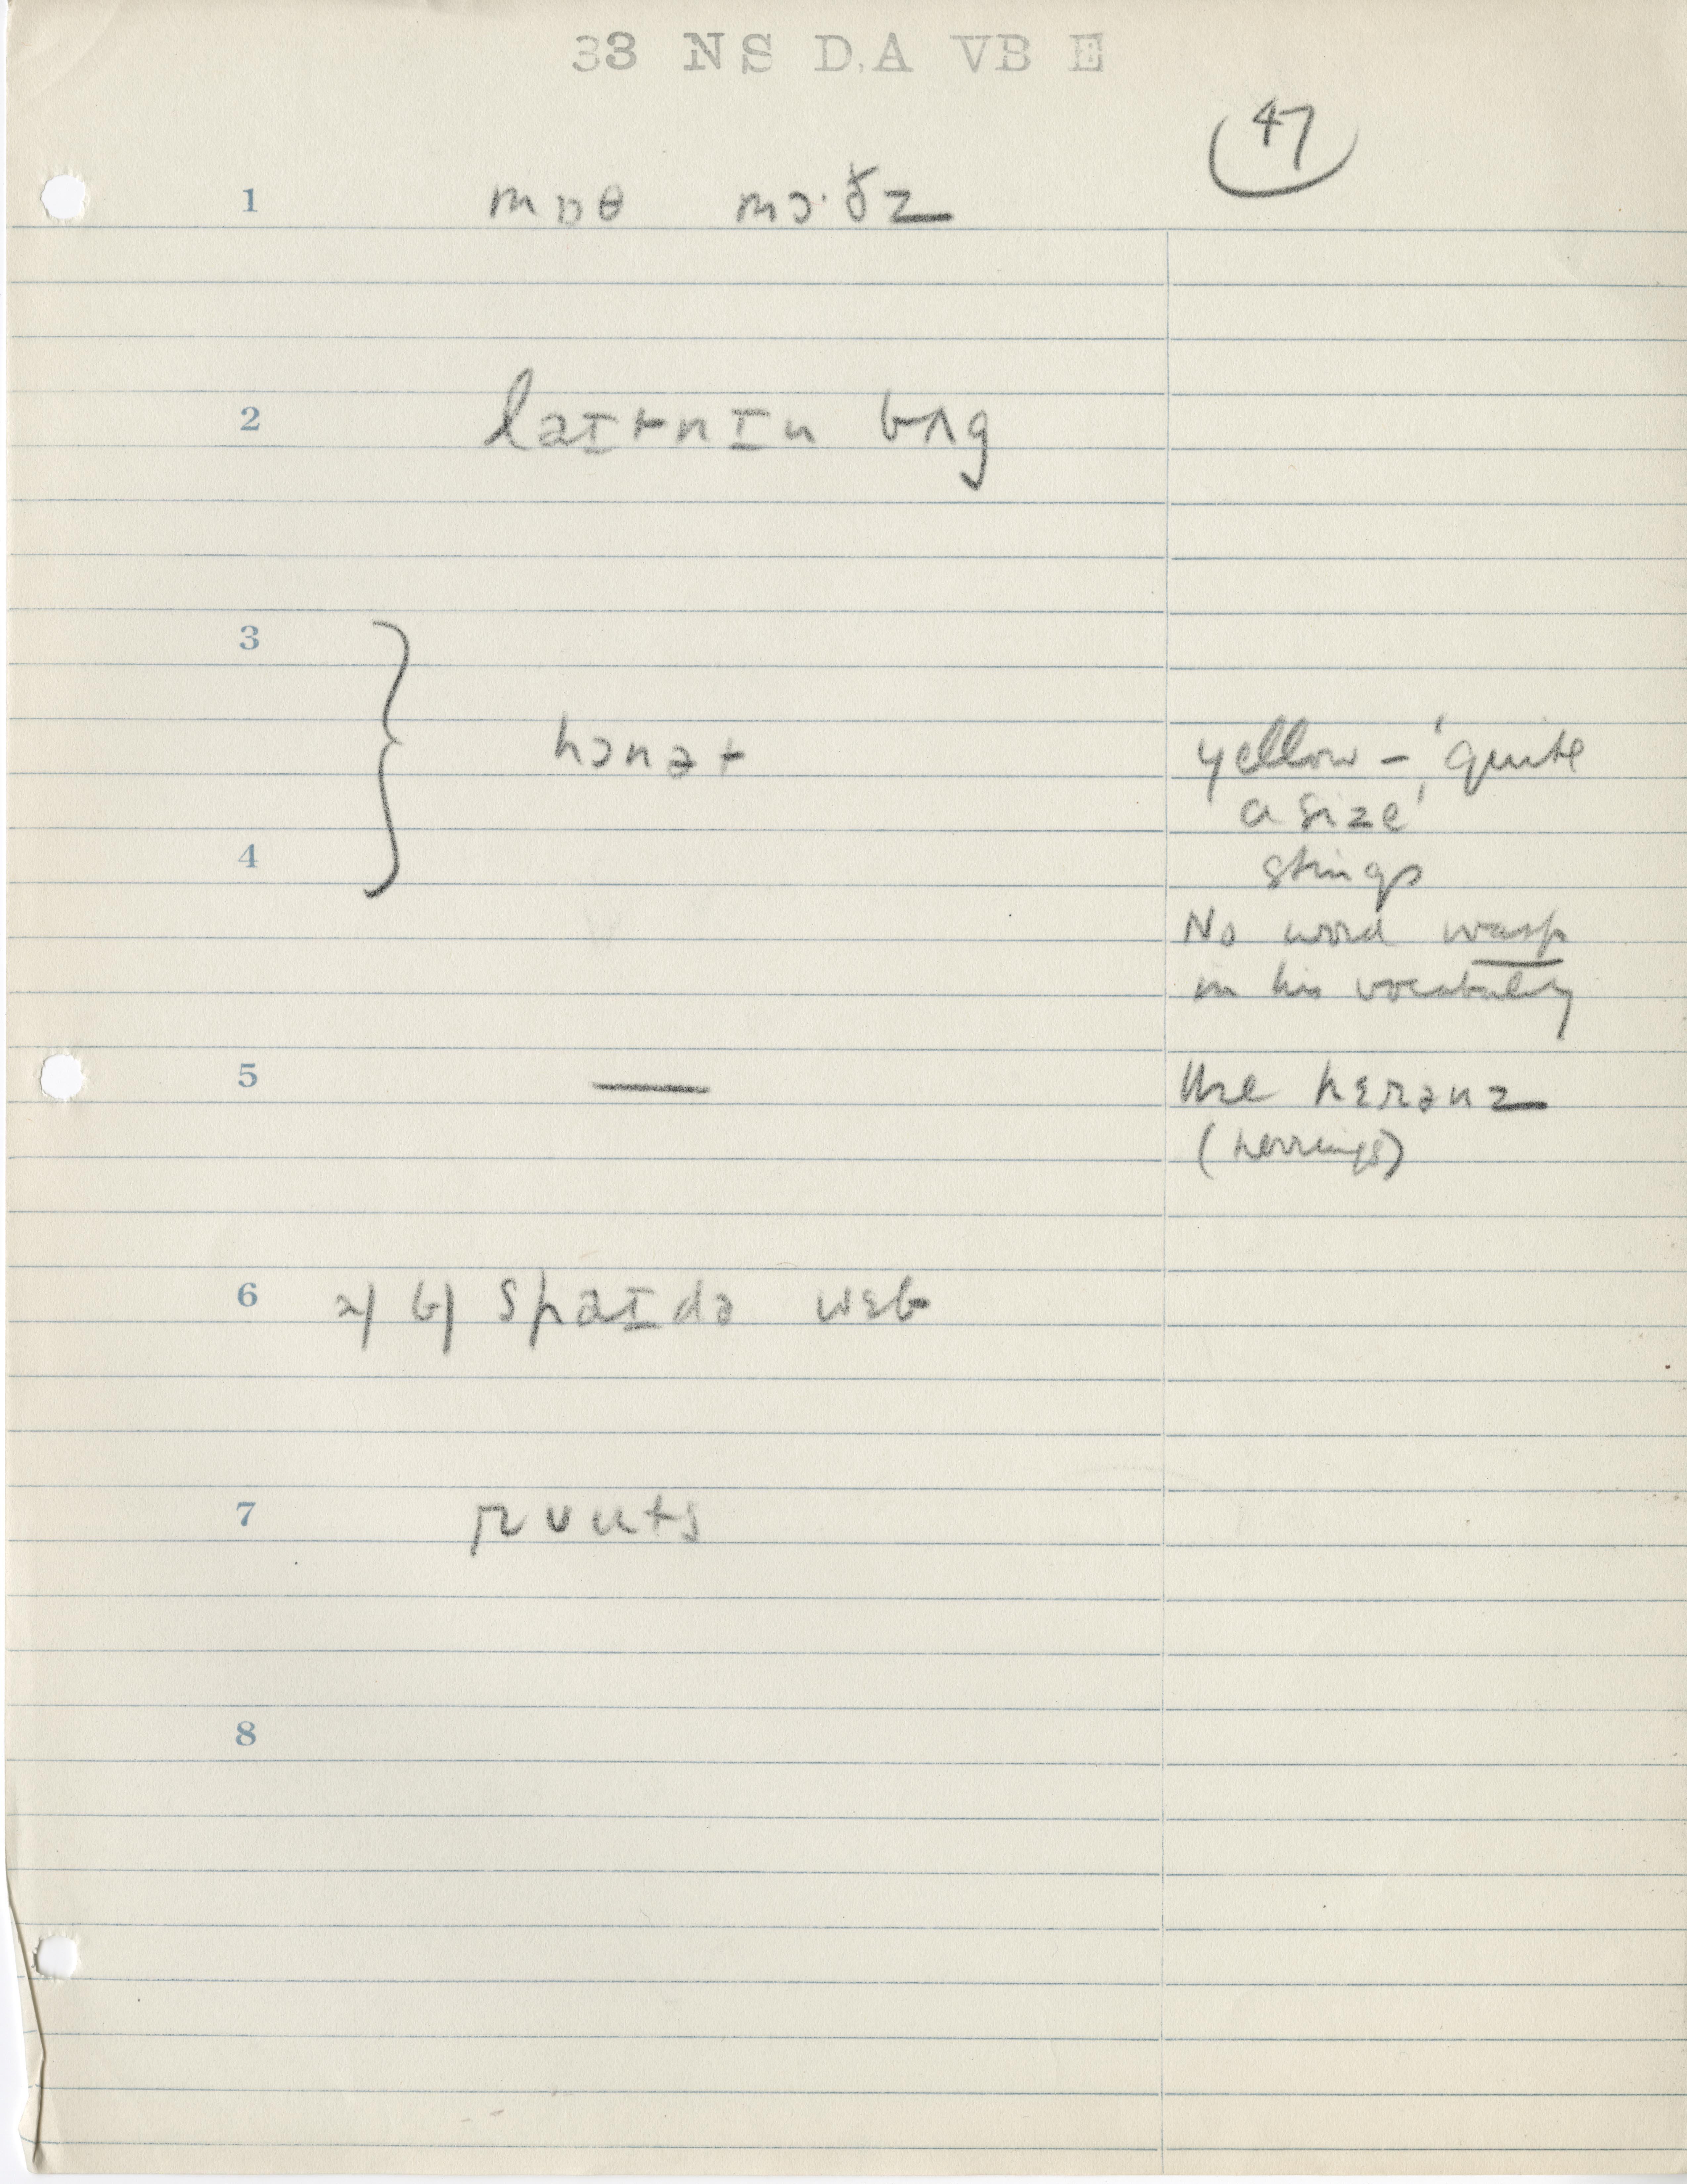 33 NS D.A VB E
47
1 mɒθ mɔ·ðz
2 laɪtnɪn bʌg
3
hɔnət yellow – 'quite
a size'
4 stings
No word wasp
in his vocabulary
5 — Use hɛrənz
(herrings)
6 a) b) spaɪdə wɛb
7 ruuts
8